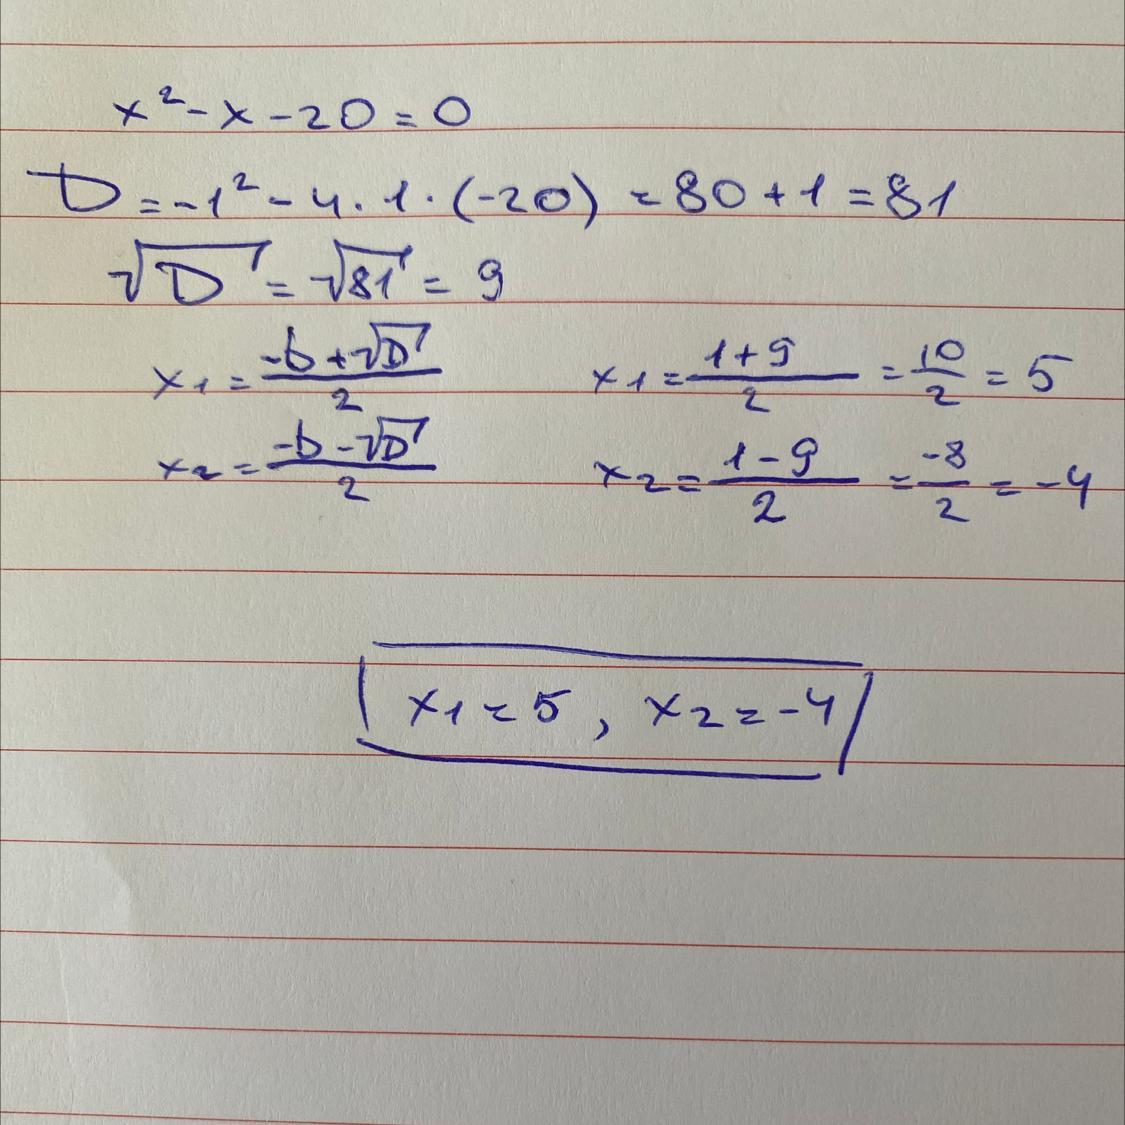 x² - x - 20 = 0
D = -1² - 4 · 1 · (-20) = 80 + 1 = 81
√D = √81 = 9
x1 = (-b + √D)/2   x1 = (1 + 9)/2 = 10/2 = 5
x2 = (-b - √D)/2   x2 = (1 - 9)/2 = -8/2 = -4
x1 = 5 , x2 = -4